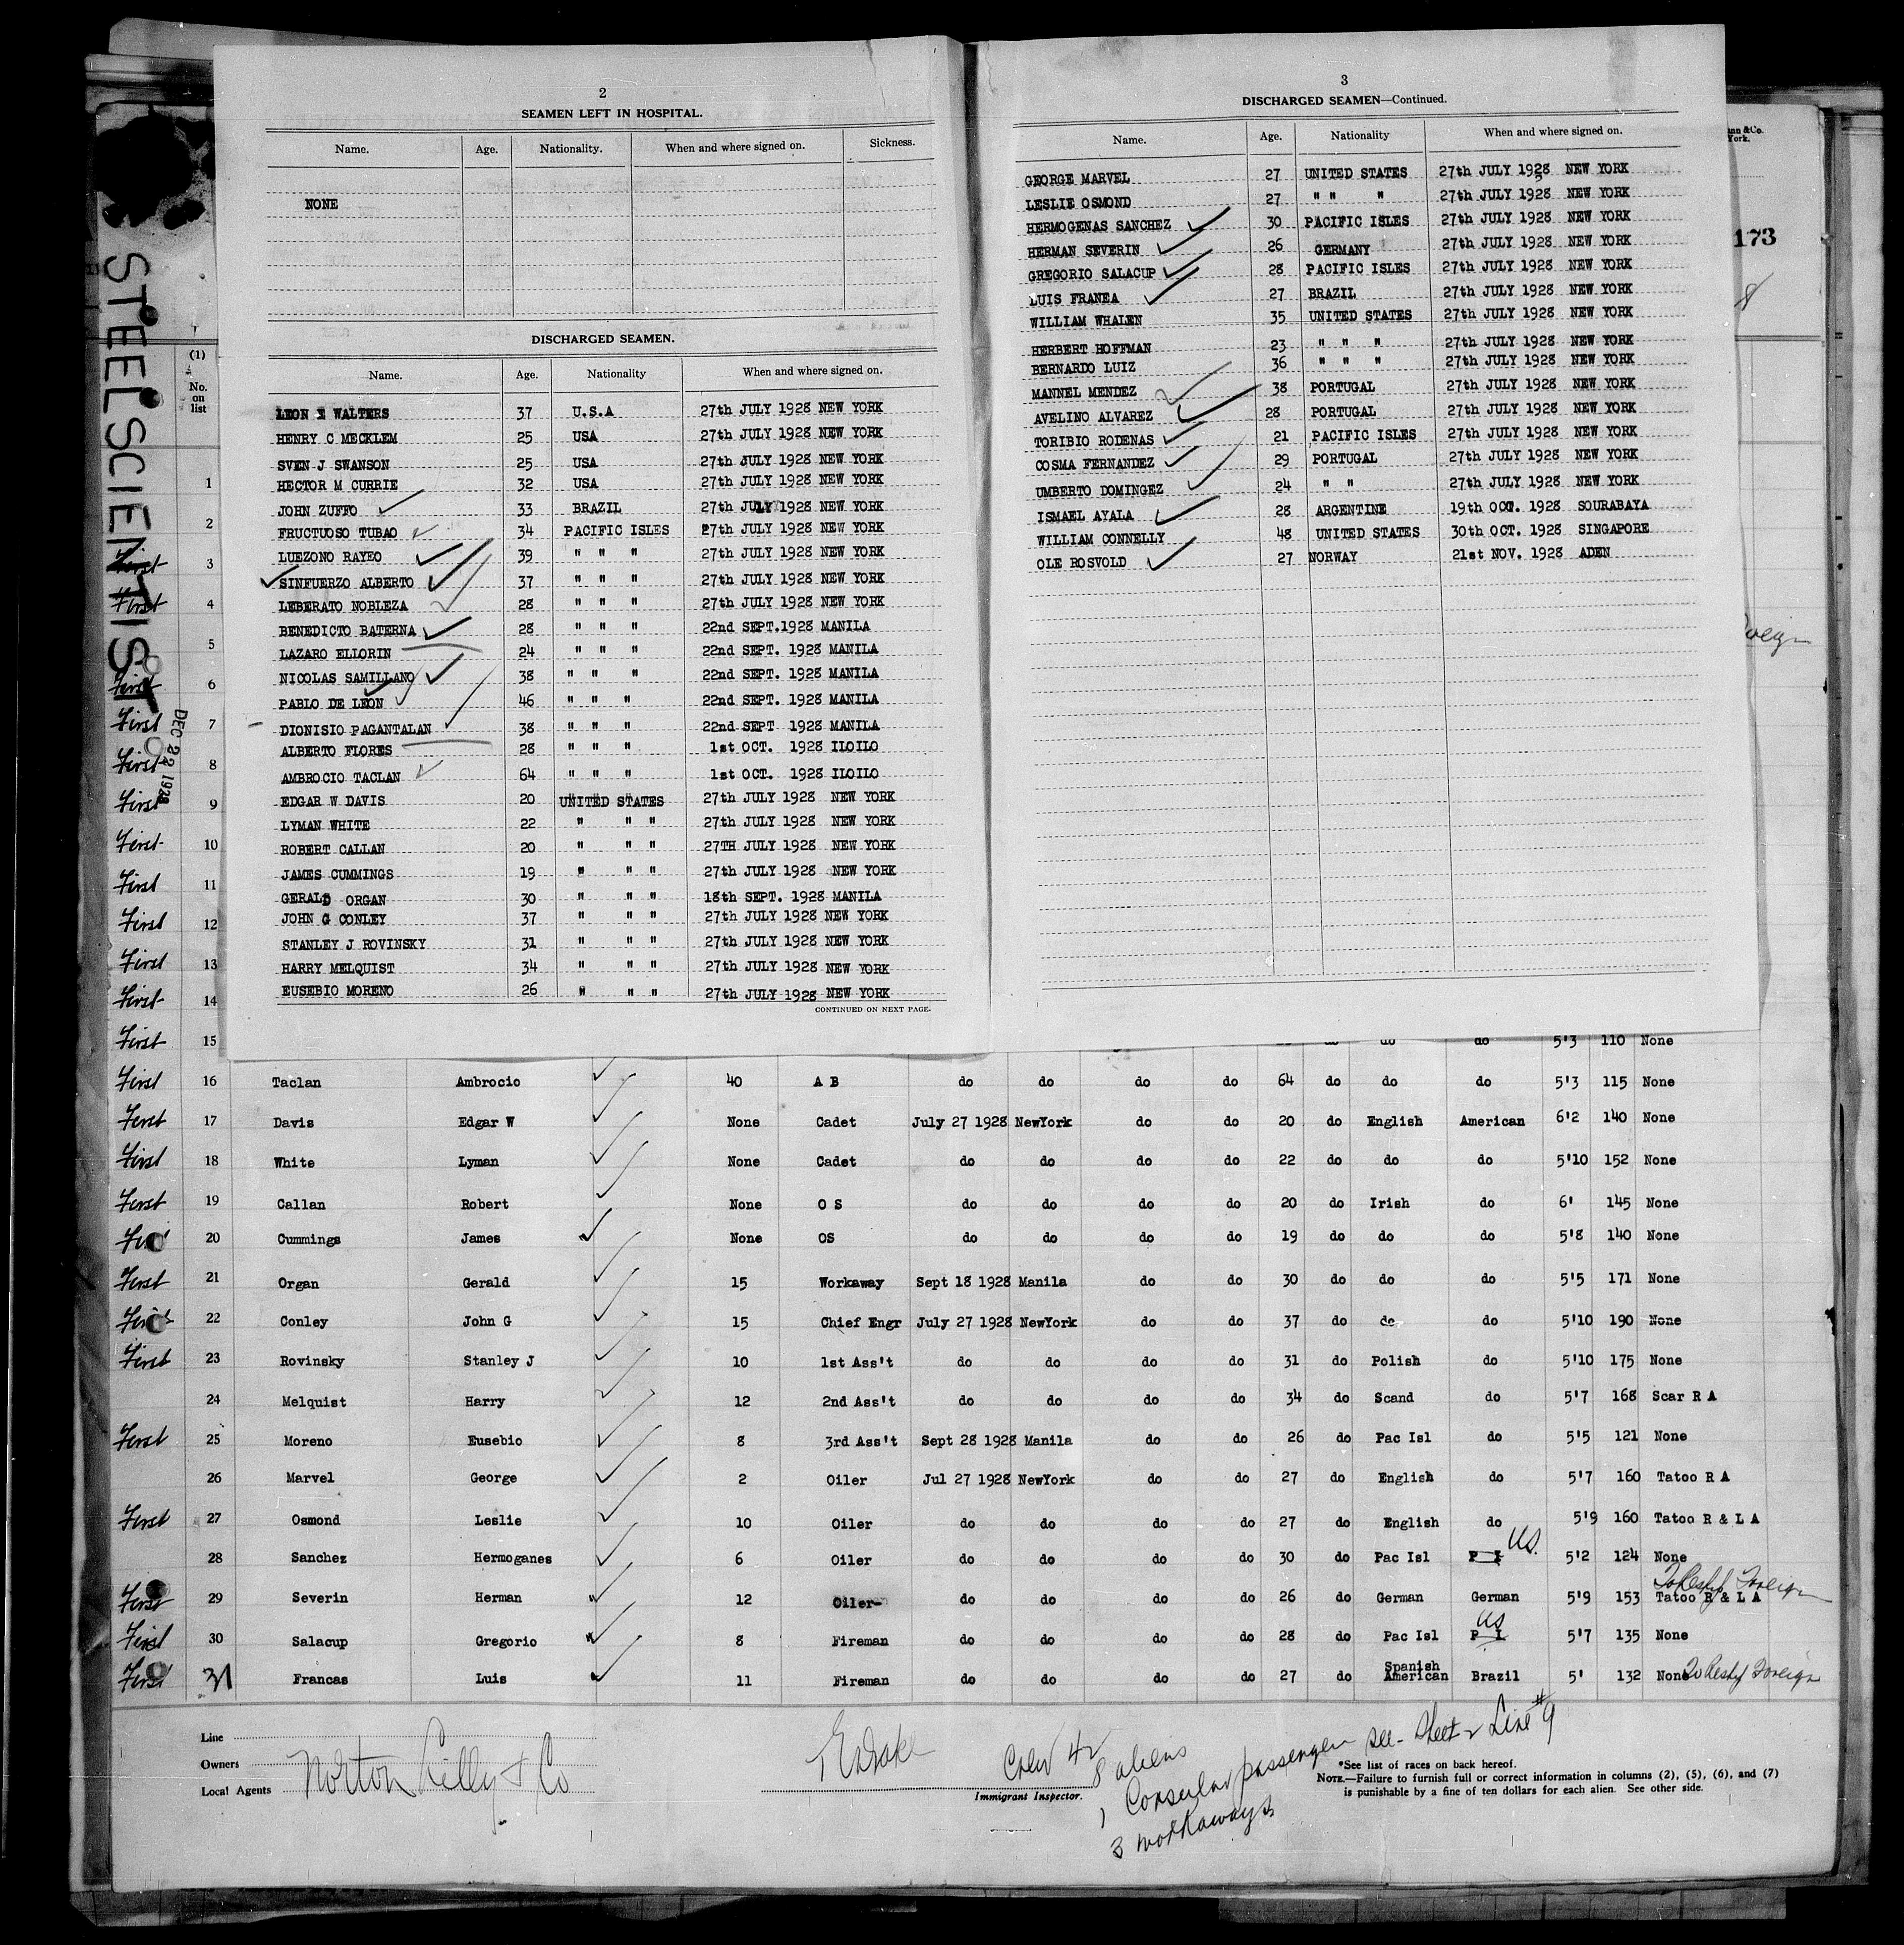 2
SEAMEN LEFT IN HOSPITAL.
Name. Age. Nationality. When and where signed on. Sickness.
NONE
DISCHARGED SEAMEN.
Name. Age. Nationality When and where signed on.
LEON E WALTERS 37 U.S.A 27th JULY 1928 NEW YORK
HENRY C MECKLEM 25 USA 27th JULY 1928 NEW YORK
SVEN J SWANSON 25 USA 27th JULY 1928 NEW YORK
HECTOR M CURRIE 32 USA 27th JULY 1928 NEW YORK
JOHN ZUFFO 33 BRAZIL 27th JULY 1928 NEW YORK
FRUCTUOSO TUBAO 34 PACIFIC ISLES 27th JULY 1928 NEW YORK
LUEZONO RAYEO 39 " " " 27th JULY 1928 NEW YORK
SINFUERZO ALBERTO 37 " " " 27th JULY 1928 NEW YORK
LEBERATO NOBLEZA 28 " " " 27th JULY 1928 NEW YORK
BENEDICTO BATERNA 28 " " " 22nd SEPT.1928 MANILA
LAZARO ELLORIN 24 " " " 22nd SEPT. 1928 MANILA
NICOLAS SAMILLANO 38 " " " 22nd SEPT. 1928 MANILA
PABLO DE LEON 46 " " " 22nd SEPT. 1928 MANILA
DIONISIO PAGANTALAN 38 " " " 22nd SEPT 1928 MANILA
ALBERTO FLORES 28 " " " 1st OCT. 1928 ILOILO
AMBROCIO TACLAN 64 " " " 1st OCT. 1928 ILOILO
EDGAR W DAVIS 20 UNITED STATES 27th JULY 1928 NEW YORK
LYMAN WHITE 22 " " " 27th JULY 1928 NEW YORK
ROBERT CALLAN 20 " " " 27TH JULY 1928 NEW YORK
JAMES CUMMINGS 19 " " " 27th JULY 1928 NEW YORK
GERALD ORGAN 30 " " " 18th SEPT. 1928 MANILA
JOHN G CONLEY 37 " " " 27th JULY 1928 NEW YORK
STANLEY J ROVINSKY 31 " " " 27th JULY 1928 NEW YORK
HARRY MELQUIST 34 " " " 27th JULY 1928 NEW YORK
EUSEBIO MORENO 26 " " " 27th JULY 1928 NEW YORK
CONTINUED ON NEXT PAGE.
3
DISCHARGED SEAMEN—Continued.
Name. Age. Nationality When and where signed on.
GEORGE MARVEL 27 UNITED STATES 27th JULY 1928 NEW YORK
LESLIE OSMOND 27 " " " 27th JULY 1928 NEW YORK
HERMOGENAS SANCHEZ 30 PACIFIC ISLES 27th JULY 1928 NEW YORK
HERMAN SEVERIN 26 GERMANY 27th JULY 1928 NEW YORK
GREGORIO SALACUP 28 PACIFIC ISLES 27th JULY 1928 NEW YORK
LUIS FRANEA 27 BRAZIL 27th JULY 1928 NEW YORK
WILLIAM WHALEN 35 UNITED STATES 27th JULY 1928 NEW YORK
HERBERT HOFFMAN 23 " " " 27th JULY 1928 NEW YORK
BERNARDO LUIZ 36 " " " 27th JULY 1928 NEW YORK
MANNEL MENDEZ 38 PORTUGAL 27th JULY 1928 NEW YORK
AVELINO ALVAREZ 28 PORTUGAL 27th JULY 1928 NEW YORK
TORIBIO RODENAS 21 PACIFIC ISLES 27th JULY 1928 NEW YORK
COSMA FERNANDEZ 29 PORTUGAL 27th JULY 1928 NEW YORK
UMBERTO DOMINGEZ 24 " " 27th JULY 1928 NEW YORK
ISMAEL AYALA 28 ARGENTINE 19th OCT. 1928 SOURABAYA
WILLIAM CONNELLY 48 UNITED STATES 30th OCT. 1928 SINGAPORE
OLE ROSVOLD 27 NORWAY 21st NOV. 1928 ADEN
& Co.
York.
173
STEEL SCIENTIST
DEC 22 1928
(1)
No. on list
1
2
First 3
First 4
5
First 6
First 7
First 8
First 9
First 10
First 11
First 12
First 13
First 14
First 15 do do 5'3 110 None
First 16 Taclan Ambrocio 40 A B do do do do 64 do do do 5'3 115 None
First 17 Davis Edgar W None Cadet July 27 1928 NewYork do do 20 do English American 6'2 140 None
First 18 White Lyman None Cadet do do do do 22 do do do 5'10 152 None
First 19 Callan Robert None O S do do do do 20 do Irish do 6' 145 None
First 20 Cummings James None OS do do do do 19 do do do 5'8 140 None
First 21 Organ Gerald 15 Workaway Sept 18 1928 Manila do do 30 do do do 5'5 171 None
First 22 Conley John G 15 Chief Engr July 27 1928 NewYork do do 37 do do do 5'10 190 None
First 23 Rovinsky Stanley J 10 1st Ass't do do do do 31 do Polish do 5'10 175 None
24 Melquist Harry 12 2nd Ass't do do do do 34 do Scand do 5'7 168 Scar R A
First 25 Moreno Eusebio 8 3rd Ass't Sept 28 1928 Manila do do 26 do Pac Isl do 5'5 121 None
26 Marvel George 2 Oiler Jul 27 1928 NewYork do do 27 do English do 5'7 160 Tatoo R A
First 27 Osmond Leslie 10 Oiler do do do do 27 do English do 5'9 160 Tatoo R & L A
28 Sanchez Hermoganes 6 Oiler do do do do 30 do Pac Isl P I US. 5'2 124 None
First 29 Severin Herman 12 Oiler do do do do 26 do German German 5'9 153 Tatoo R & L A To Reshp Foreign
First 30 Salacup Gregorio 8 Fireman do do do do 28 do Pac Isl P I US 5'7 135 None
First 31 Francas Luis 11 Fireman do do do do 27 do Spanish American Brazil 5' 132 None To Reshp Foreign
Line
Owners
Local Agents Norton Lilly & Co
Immigrant Inspector.
Crew 42
8 aliens
1 Consular passenger see Sheet 2 Line #9
3 workaways
*See list of races on back hereof.
NOTE.—Failure to furnish full or correct information in columns (2), (5), (6), and (7)
is punishable by a fine of ten dollars for each alien. See other side.